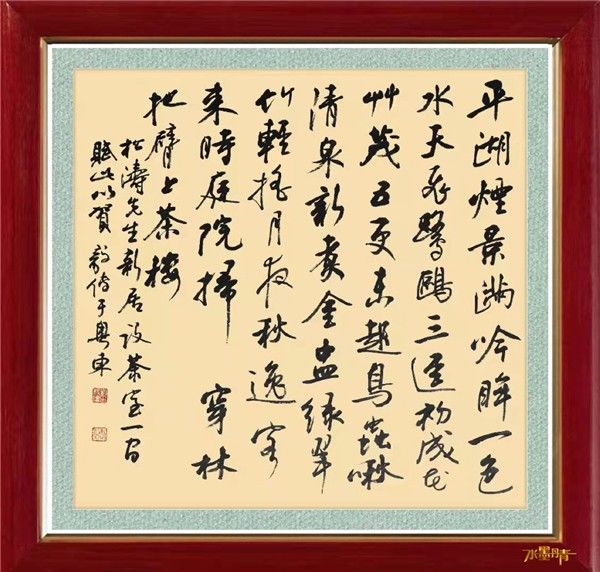 平湖煙景满吟眸一色
水天飛鷺鷗三逕初成花
艸茂五更未起鳥蟲啾
清泉新煮金盅绿翠
竹輕搖月夜秋逸客
来時庭院掃 穿林
把臂上茶樓
松濤先生新居设茶室一间
賦此以賀 于粤東
水墨丹青